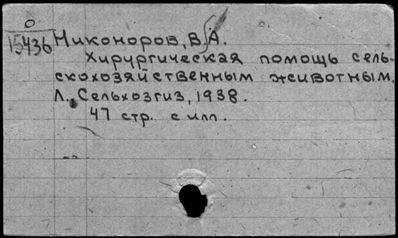 О
15436 Никоноров, В. А.
Хирургическая помощь сель-
скохозяйственным животным.
Л., Сельхозгиз, 1938.
47 стр. с илл.